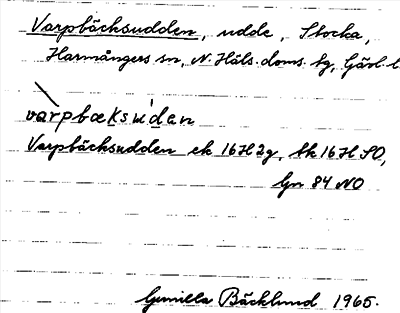 Varpbäcksudden, udde, Stocka,
Harmångers sn, N. Häls. doms. bg, Gävl. l
varpbæksudan
Varpbäcksudden ek 16H2g, tk 16H SO,
Gn 84 NO
Gunilla Bäcklund 1965.